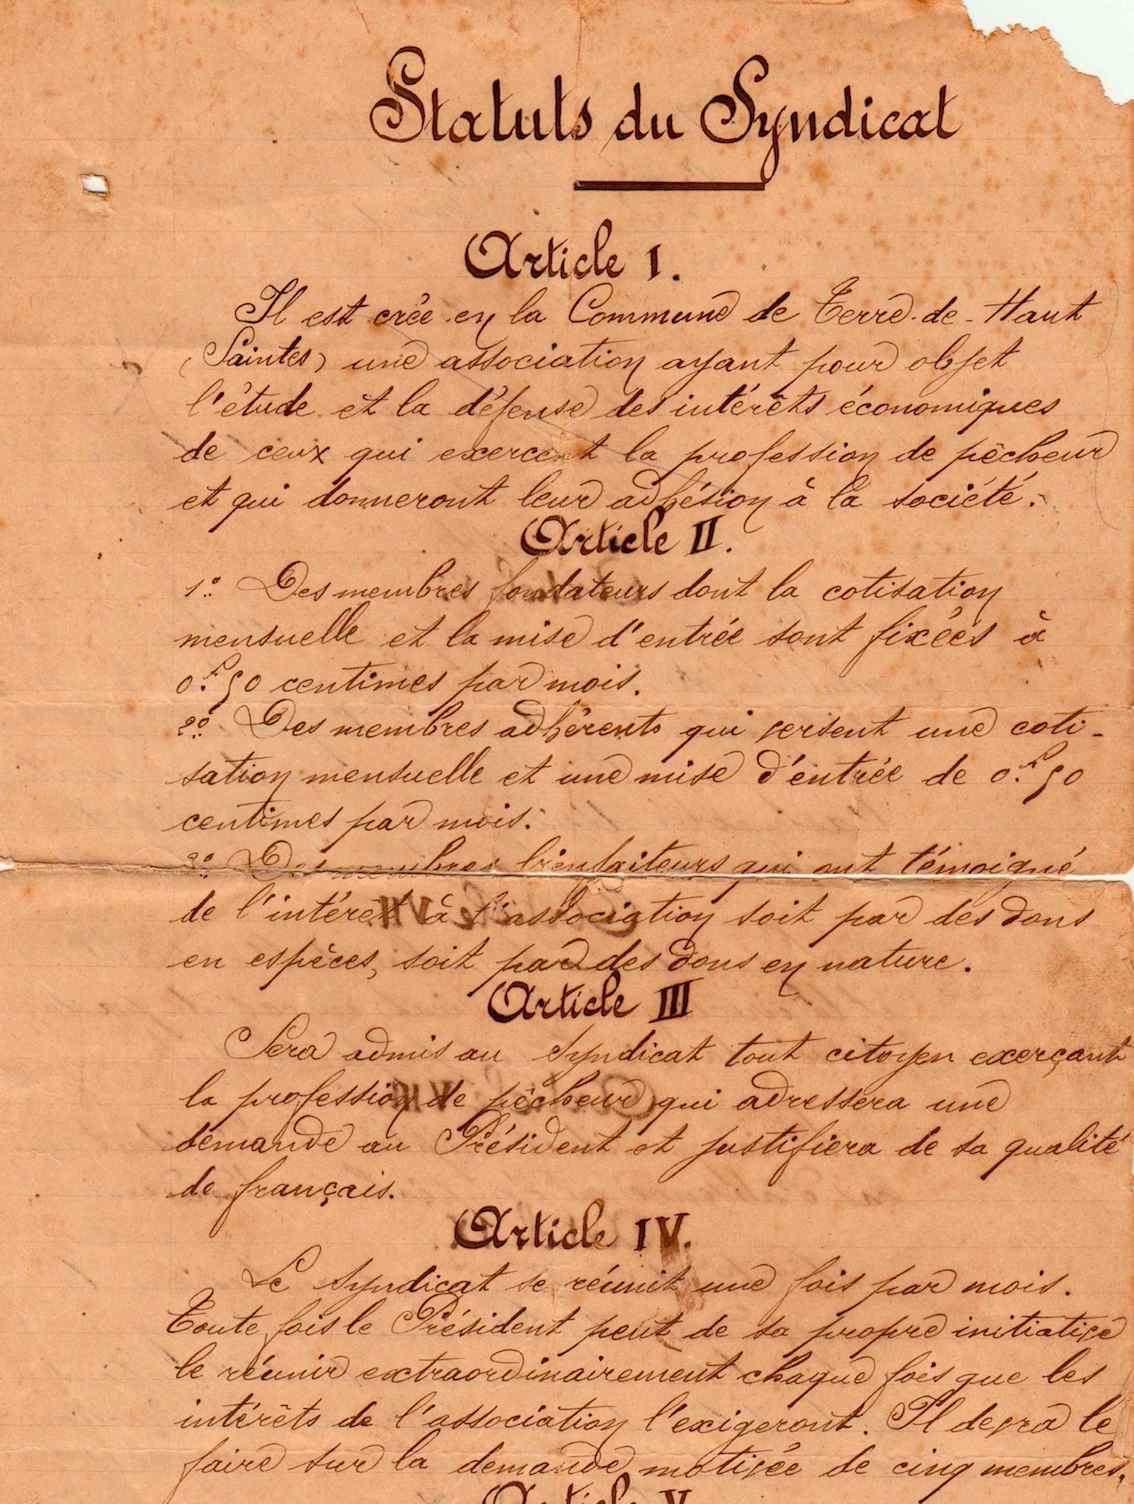 Statuts du Syndicat
Article I.
Il est crée en la Commune de Terre-de-Haut
(Saintes) une association ayant pour objet
l'étude et la défense des intérêts économiques
de ceux qui exercent la profession de pêcheur
et qui donneront leur adhésion à la société.
Article II.
1º Des membres fondateurs dont la cotisation
mensuelle et la mise d'entrée sont fixées à
0.f50 centimes par mois.
2º Des membres adhérents qui versent une coti-
sation mensuelle et une mise d'entrée de 0.f50
centimes par mois.
3º Des membres bienfaiteurs qui ont témoigné
de l'intérêt à l'association soit par des dons
en espèces, soit par des dons en nature.
Article III
Sera admis au Syndicat tout citoyen exerçant
la profession de pêcheur qui adressera une
demande au Président et justifiera de sa qualité
de français.
Article IV.
Le Syndicat se réunit une fois par mois.
Toute fois le Président peut de sa propre initiative
le réunir extraordinairement chaque fois que les
intérêts de l'association l'exigeront. Il devra le
faire sur la demande motivée de cinq membres.
Article V